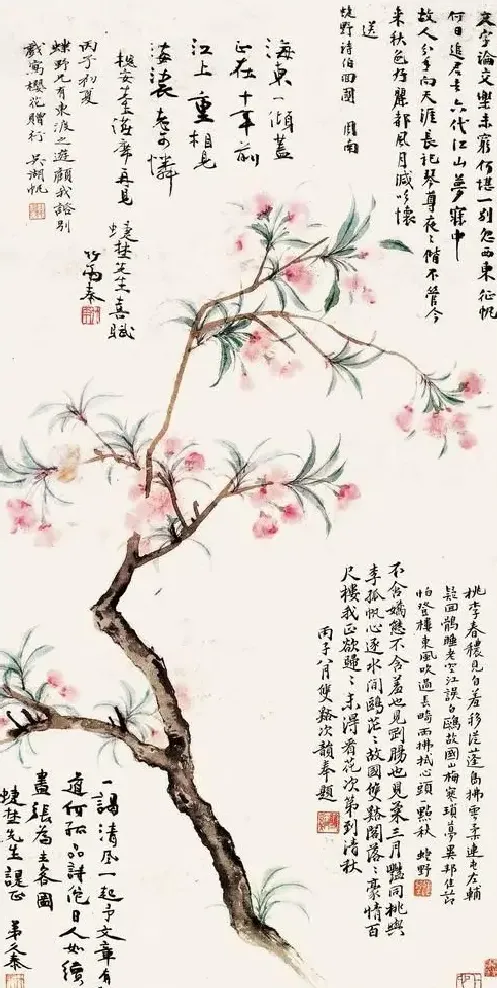 文字論文樂未窮何堪一別忽西東征帆
何日追君去六代江山夢寐中
故人分手向天涯長記琴尊夜夜偕不管今
来秋色好麗都風月減吟懷
送
蜨野詩伯回國
海東一傾蓋
正在十年前
江上重相見
海濱老可憐
槐安墓滋席再見
蜨埜先生喜賦
丙子初夏
蜨野兄有東渡之遊顧我話别
戲寫櫻花贈行 吳湖帆
桃李春穠見自羞移從蓬島拂雲柔連屯左輔
疑回鵲睡老空江誤白鷗故國山梅寒瑣夢異邦佳節
怕登樓東風吹過長崎雨拂拭心頭一點秋 蜨野
不含嬌態不含羞也見劉腸也見柔三月豔同桃與
李孤帆心逐水間鷗茫茫故國雙鬆闊落落豪情百
尺樓我正欲歸歸未得看花次第到清秋
丙子八月雙谿次韻奉題
一謁清風一起予文章有
道何私品詩他日人如續
畫張為主客圖
蜨埜先生諟正
弟久泰